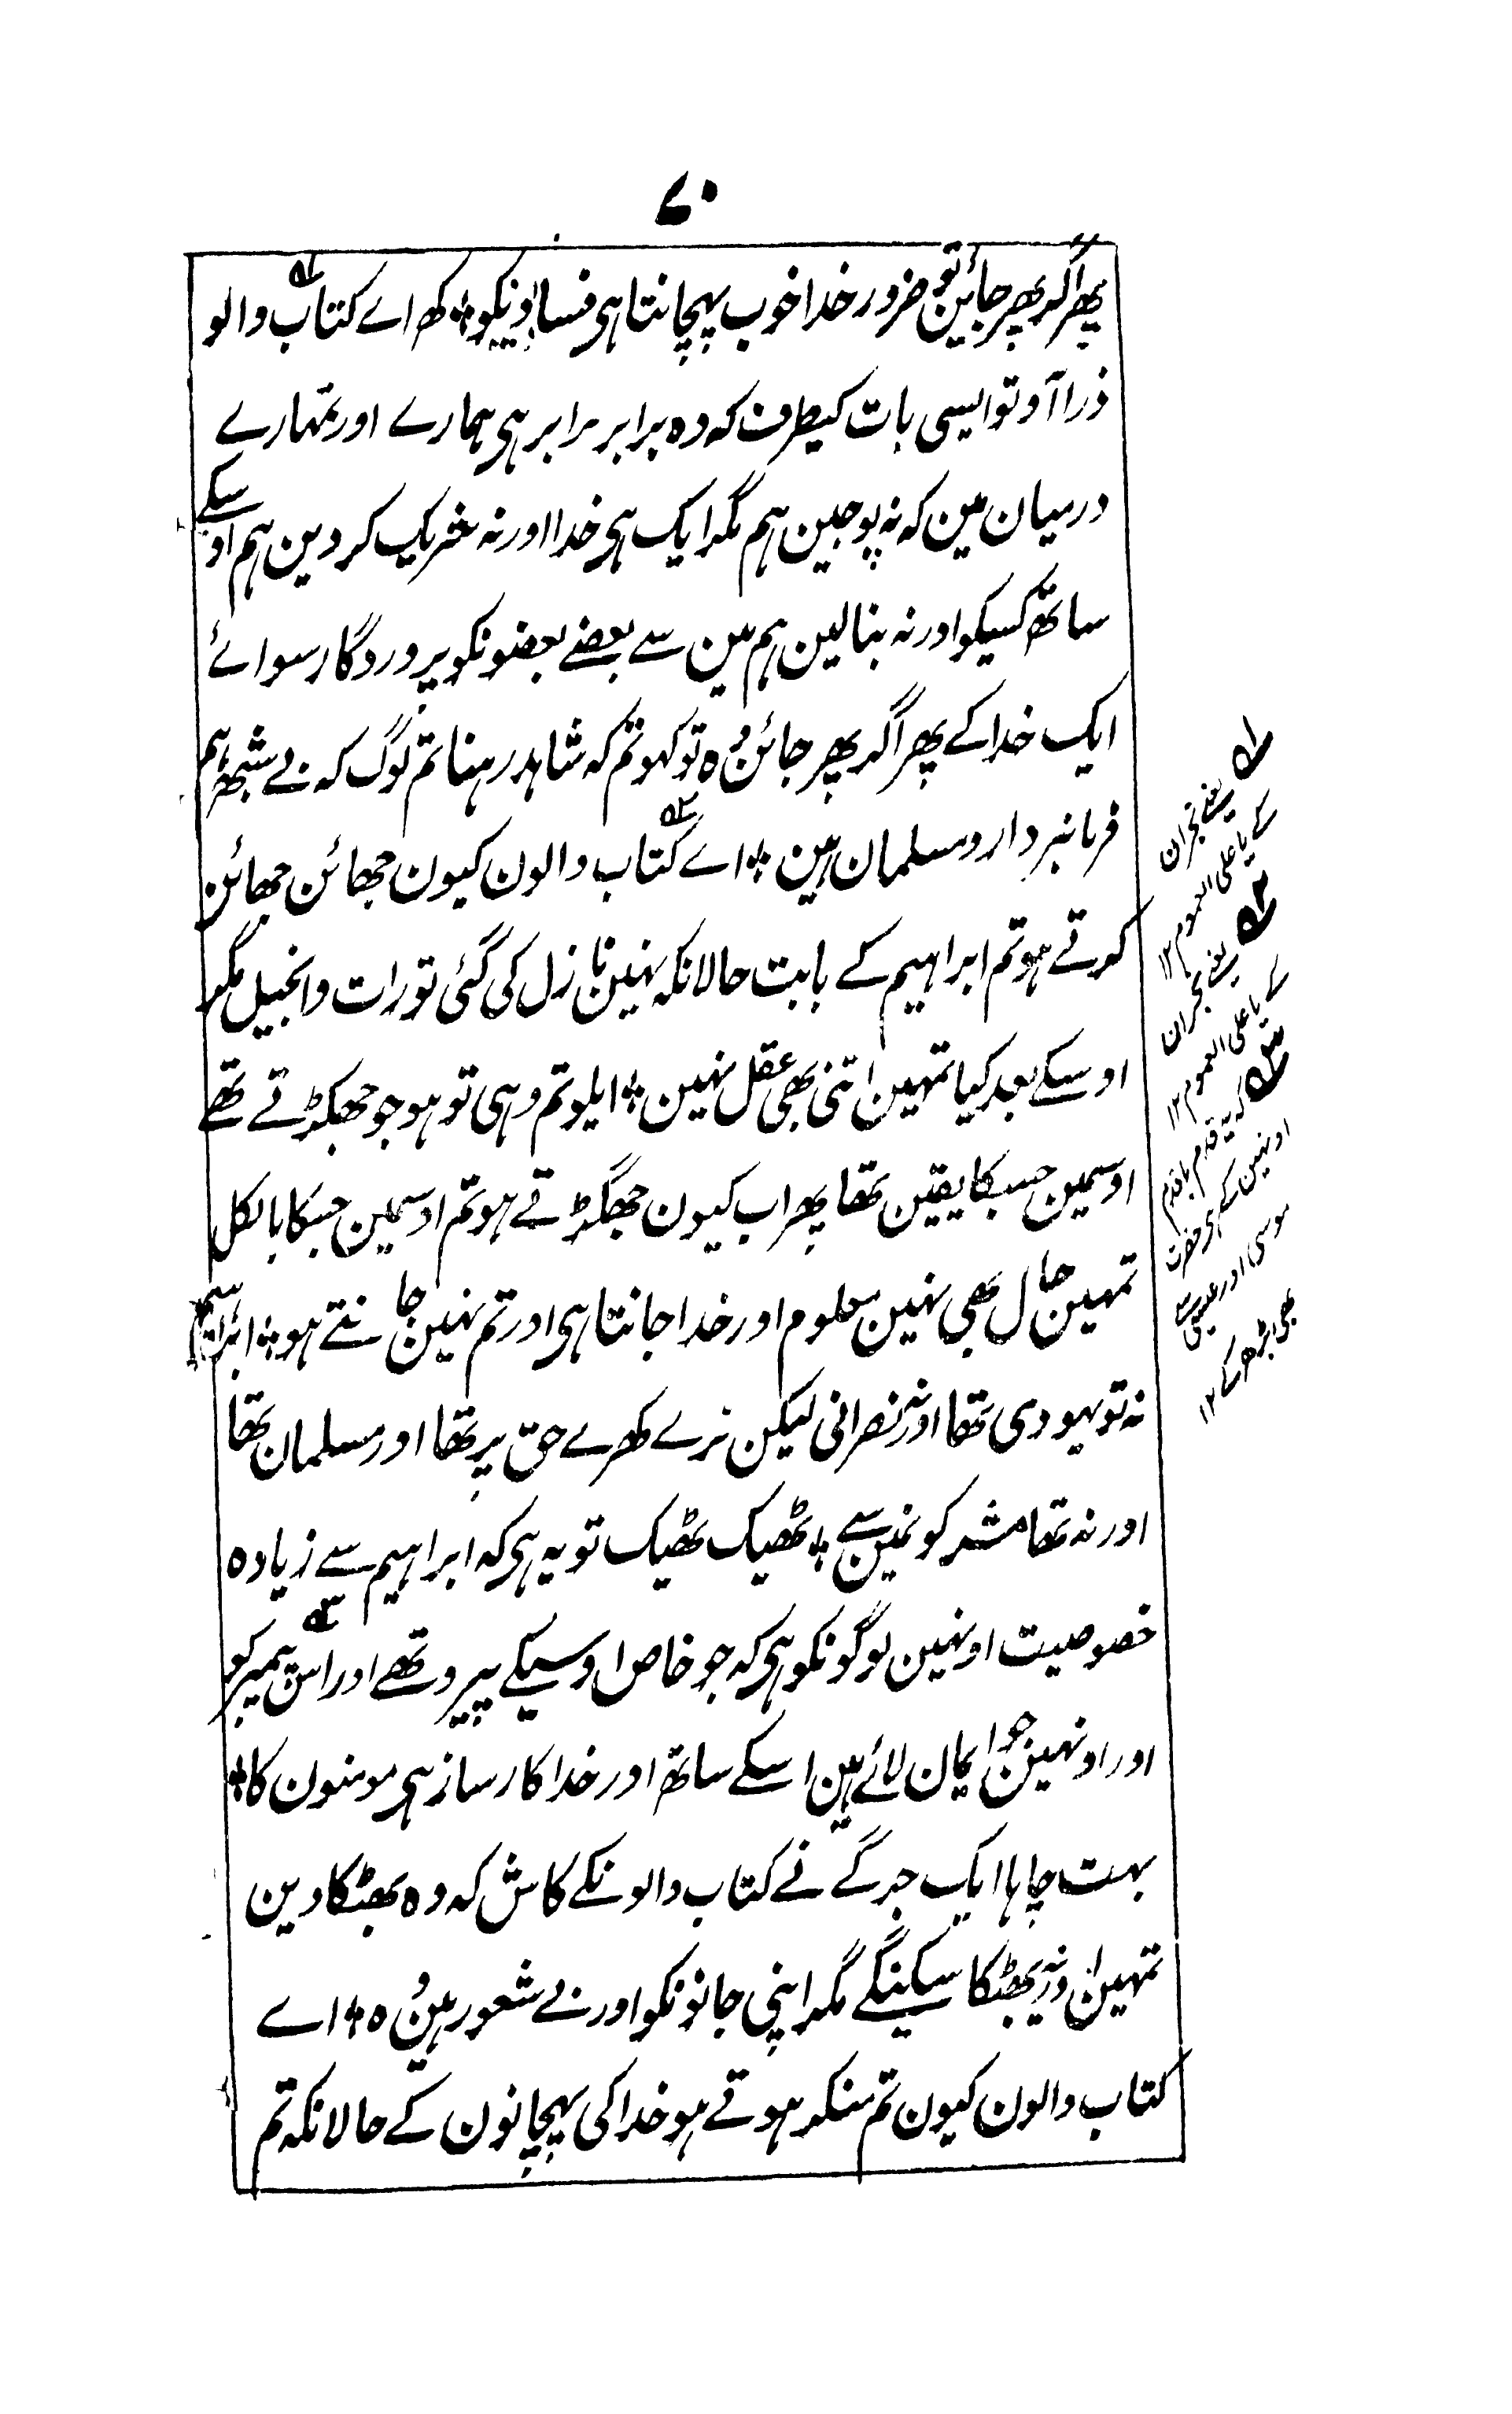 ۷۰
پھر اگر پھر جائین تو ضرور خدا خوب پہچانتا ہی فسادیونکو ؛ کھ اے کتاب والو
ذرا آو تو ایسی بات کیطرف کہ وہ برابر برابر ہی ہمارے اور تمہارے
درمیان مین کہ نہ پوجین ہم مگر ایک ہی خدا اور نہ شریک کر دین ہم اوسکے
ساتھ کسیکو اور نہ بنالین ہم مین سے بعضے بعضونکو پروردگار سوائے
ایک خدا کے پھر اگر پھر جائن وہ تو کہو تم کہ شاہد رہنا تم لوگ کہ بے شبھ ہم
فرمانبردار و مسلمان ہین ؛ اے کتاب والون کیون جھائن جھائن
کرتے ہو تم ابراہیم کے بابت حالانکہ نہین نازل کی گئی تورات و انجیل مگر
اوسکے بعد کیا تمہین اتنی بھی عقل نہین ؛ ایلو تم وہی تو ہو جو جھگڑتے تھے
اوسمین جسکا یقین تھا پھر اب کیون جھگڑتے ہو تم اوسمین جسکا بالکل
تمہین حال بھی نہین معلوم اور خدا جانتا ہی اور تم نہین جانتے ہو ؛ ابراہیم
نہ تو یہودی تھا اور نہ نصرانی لیکن نرے کھرے حق پر تھا اور مسلمان تھا
اور نہ تھا مشرکونمین سے ؛ ٹھیک ٹھیک تو یہ ہی کہ ابراہیم سے زیادہ
خصوصیت اونہین لوگونکو ہی کہ جو خاص اوسیکے پیرو تھے اور اس پیمبر کو
اور اونہین جو ایمان لائے ہین اسکے ساتھ اور خدا کارساز ہی مومنون کا ؛
بہت چاہا ایک جرگے نے کتاب والونکے کاش کہ وہ بھٹکا دین
تمہین اور نہ بھٹکا سکینگے مگر اپنی جانونکو اور بے شعور ہین وہ ؛ اے
کتاب والون کیون تم منکر ہوتے ہو خدا کی پہچانون کے حالانکہ تم
۱ یعنے نجران
کے یا علی العموم ۱۲
۲ یعنے نجران
کے یا علی العموم ۱۲
۳ کہ یہ قدم باقدم
اونہین کے ہی حضرت
موسی اور عیسی سے
بھی بڑھ کے ۱۲